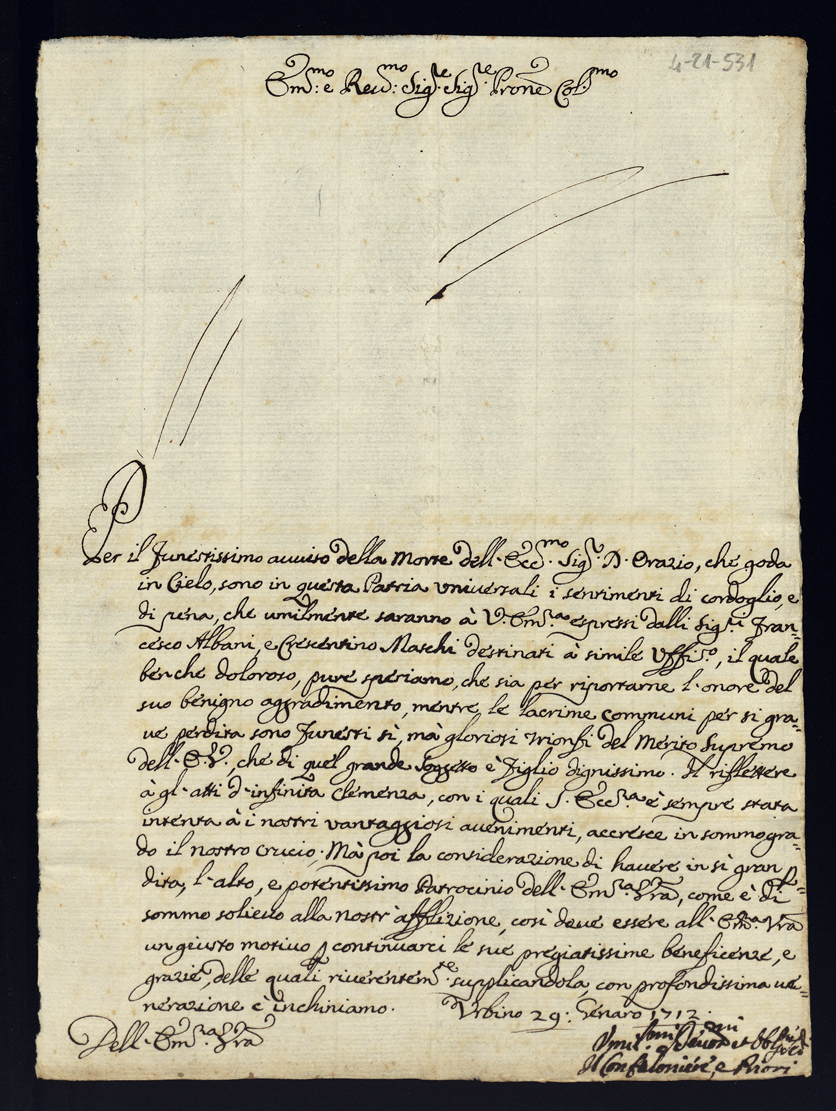 4-21-531
Em.mo: e Reu.mo: Sig.re Sig.re Prone Col.mo
Per il funestissimo auuiso della Morte dell' Ecc.mo Sig.r D. Orazio, che goda
in Cielo, sono in questa Patria universali i sentimenti di cordoglio, e
di pena, che umilmente saranno à V. Em.za espressi dalli Sig.ri Fran=
cesco Albani, e Crescentino Maschi destinati à simile Uffi.o, il quale
benche doloroso, pure speriamo, che sia per riportarne l'onore del
suo benigno aggradimento, mentre le lacrime communi per si gra=
ue perdita sono funesti si, mà gloriosi trionfi del Merito supremo
dell' E. V., che di quel grande soggetto è figlio dignissimo. Il riflettere
à gl'atti d'infinita clemenza, con i quali S. Ecc.za è sempre stata
intenta à i nostri vantaggiosi auenimenti, accresce in sommo gra=
do il nostro crucio; Mà poi la considerazione di hauere, in sì gran per=
dita, l'alto, e potentissimo Patrocinio dell' Em.za Vra, come è di
sommo solieuo alla nostr'afflizione, così deue essere all' Em.za Vra
un giusto motiuo p continuarci le sue pregiatissime beneficenze, e
grazie, delle quali riuerentem.te supplicandola, con profondissima ue=
nerazione c'inchiniamo. Urbino 29: Genaro 1712.
Dell' Em.za Vra
Umil.mi Deuot.mi et Obl.mi
Il Confaloniere, e Priori